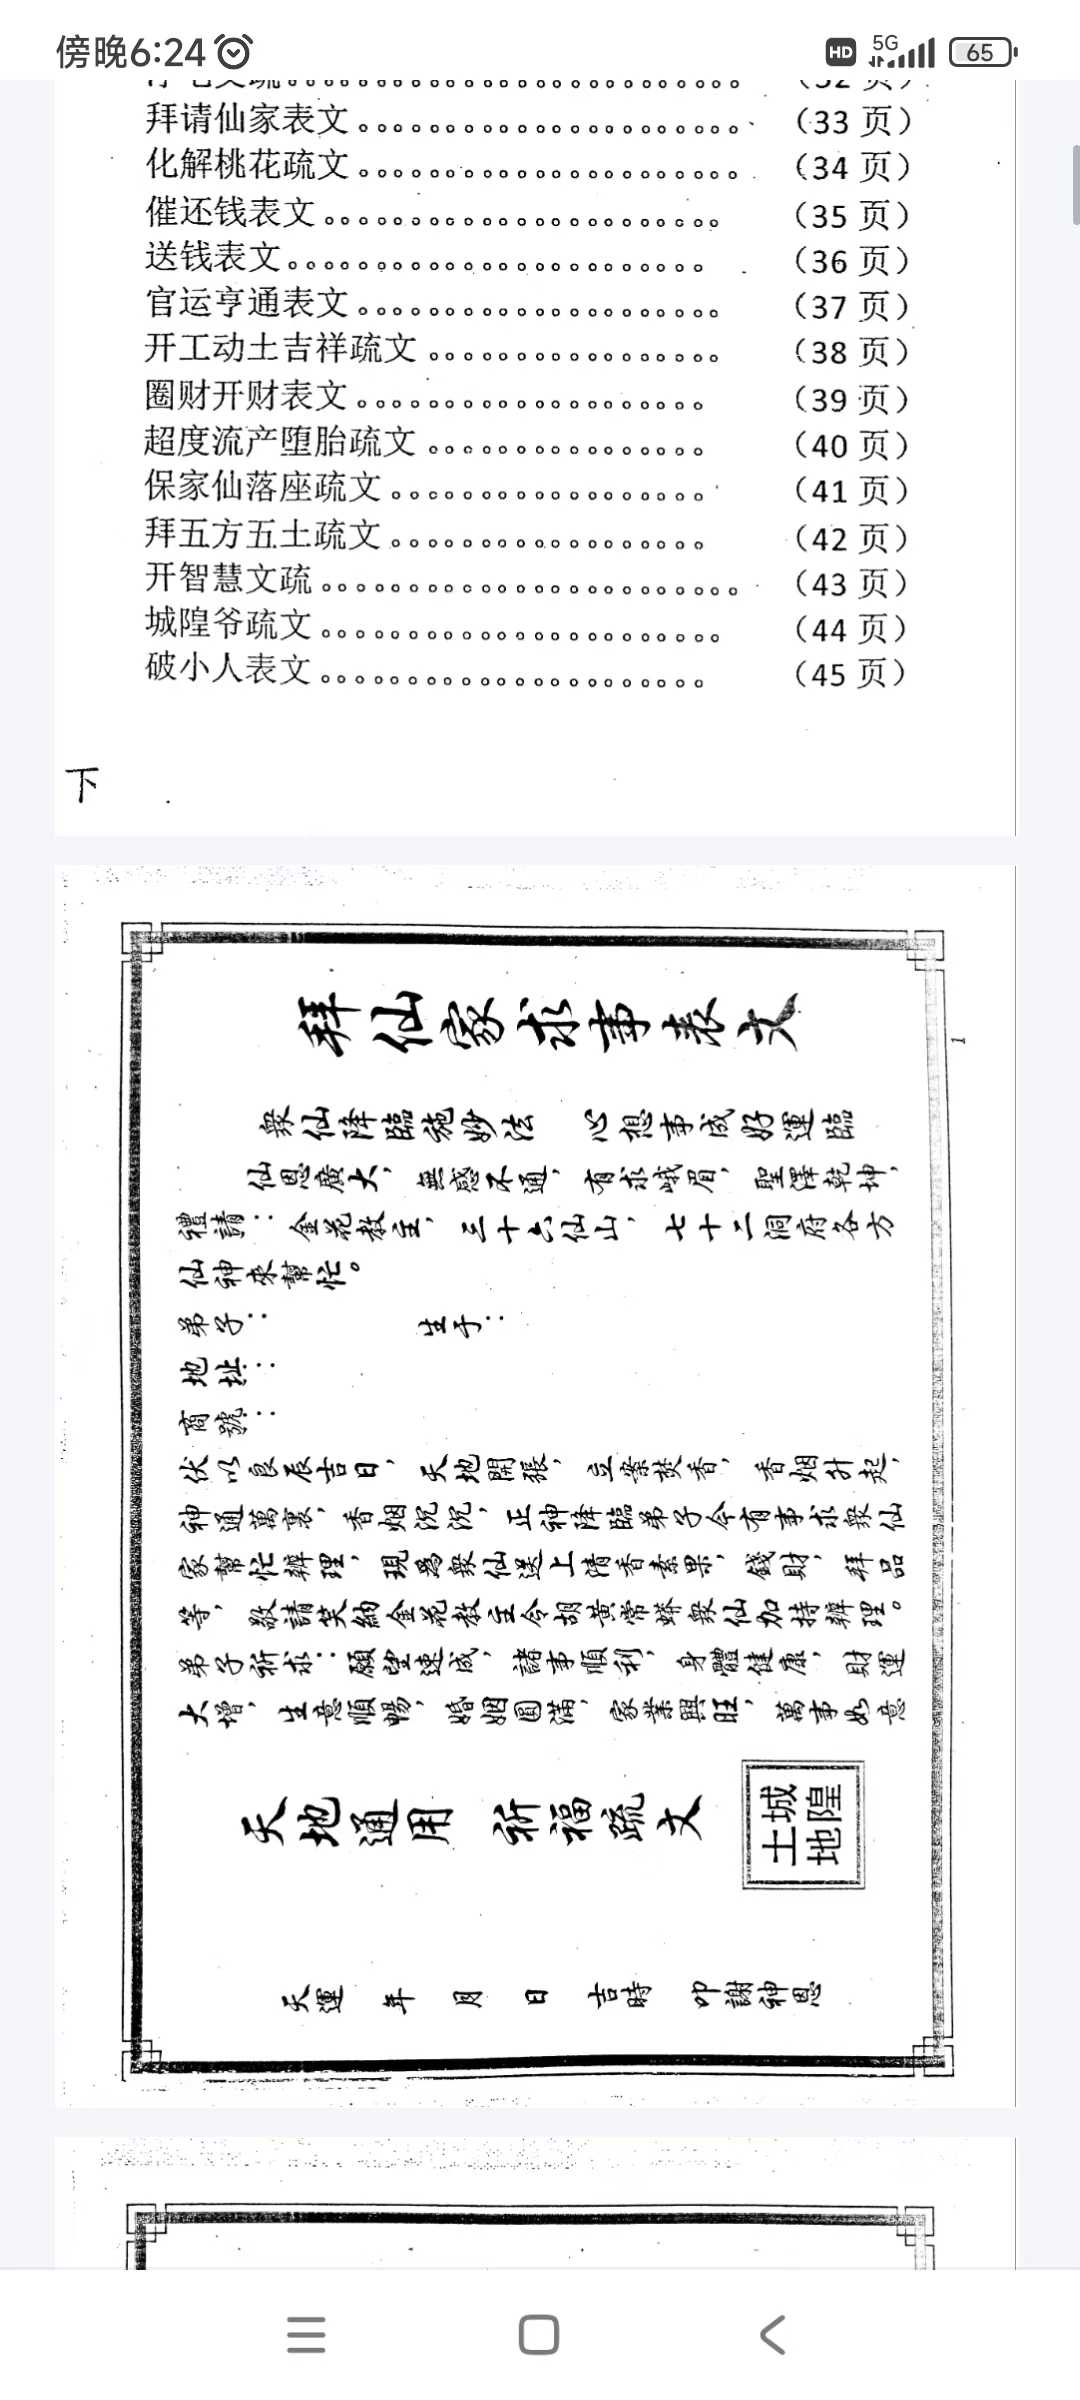 傍晚6:24
HD 5G 65
拜请仙家表文。。。。。。。。。。。。。。。。。。。。。。 (33 页)
化解桃花疏文。。。。。。。。。。。。。。。。。。。。。。 (34 页)
催还钱表文。。。。。。。。。。。。。。。。。。。。。。。 (35 页)
送钱表文。。。。。。。。。。。。。。。。。。。。。。。。 (36 页)
官运亨通表文。。。。。。。。。。。。。。。。。。。。。 (37 页)
开工动土吉祥疏文。。。。。。。。。。。。。。。。。 (38 页)
圈财开财表文。。。。。。。。。。。。。。。。。。。。 (39 页)
超度流产堕胎疏文。。。。。。。。。。。。。。。。 (40 页)
保家仙落座疏文。。。。。。。。。。。。。。。。。。 (41 页)
拜五方五土疏文。。。。。。。。。。。。。。。。。。 (42 页)
开智慧文疏。。。。。。。。。。。。。。。。。。。。。。。。 (43 页)
城隍爷疏文。。。。。。。。。。。。。。。。。。。。。。。 (44 页)
破小人表文。。。。。。。。。。。。。。。。。。。。。。 (45 页)
下
1
拜仙家求事表文
衆仙降臨施妙法 心想事成好運臨
仙恩廣大，無惑不通，有求峨眉，聖澤乾坤，
禮請：金花教主，三十六仙山，七十二洞府各方
仙神来幫忙。
弟子： 生于：
地址：
商號：
伏以良辰吉日，天地開張，立案焚香，香烟升起，
神通萬裏，香烟沉沉，正神降臨弟子今有事求衆仙
家幫忙辨理，現爲衆仙送上清香素果，錢財，拜品
等，敬請笑納金花教主令胡黃常蟒衆仙加持辨理。
弟子祈求：願望速成，諸事順利，身體健康，財運
大增，生意順暢，婚姻圓滿，家業興旺，萬事如意
天地通用 祈福疏文
城隍
土地
天運 年 月 日 吉時 叩謝神恩